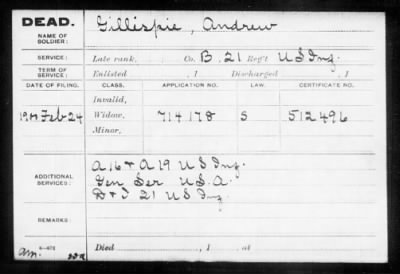 DEAD. Gillispie, Andrew
NAME OF
SOLDIER:
SERVICE: Late rank, Co. B, 21 Reg't U S Inf.
TERM OF
SERVICE: Enlisted , 1 Discharged , 1
DATE OF FILING. CLASS. APPLICATION NO. LAW. CERTIFICATE NO.
Invalid,
Feb 24 Widow, 714178 S 512496
Minor,
ADDITIONAL
SERVICES: A 16 + A 19 U S Inf.
Gen Ser U.S.A.
D + I 21 U S Inf.
REMARKS:
Died , 1 , at